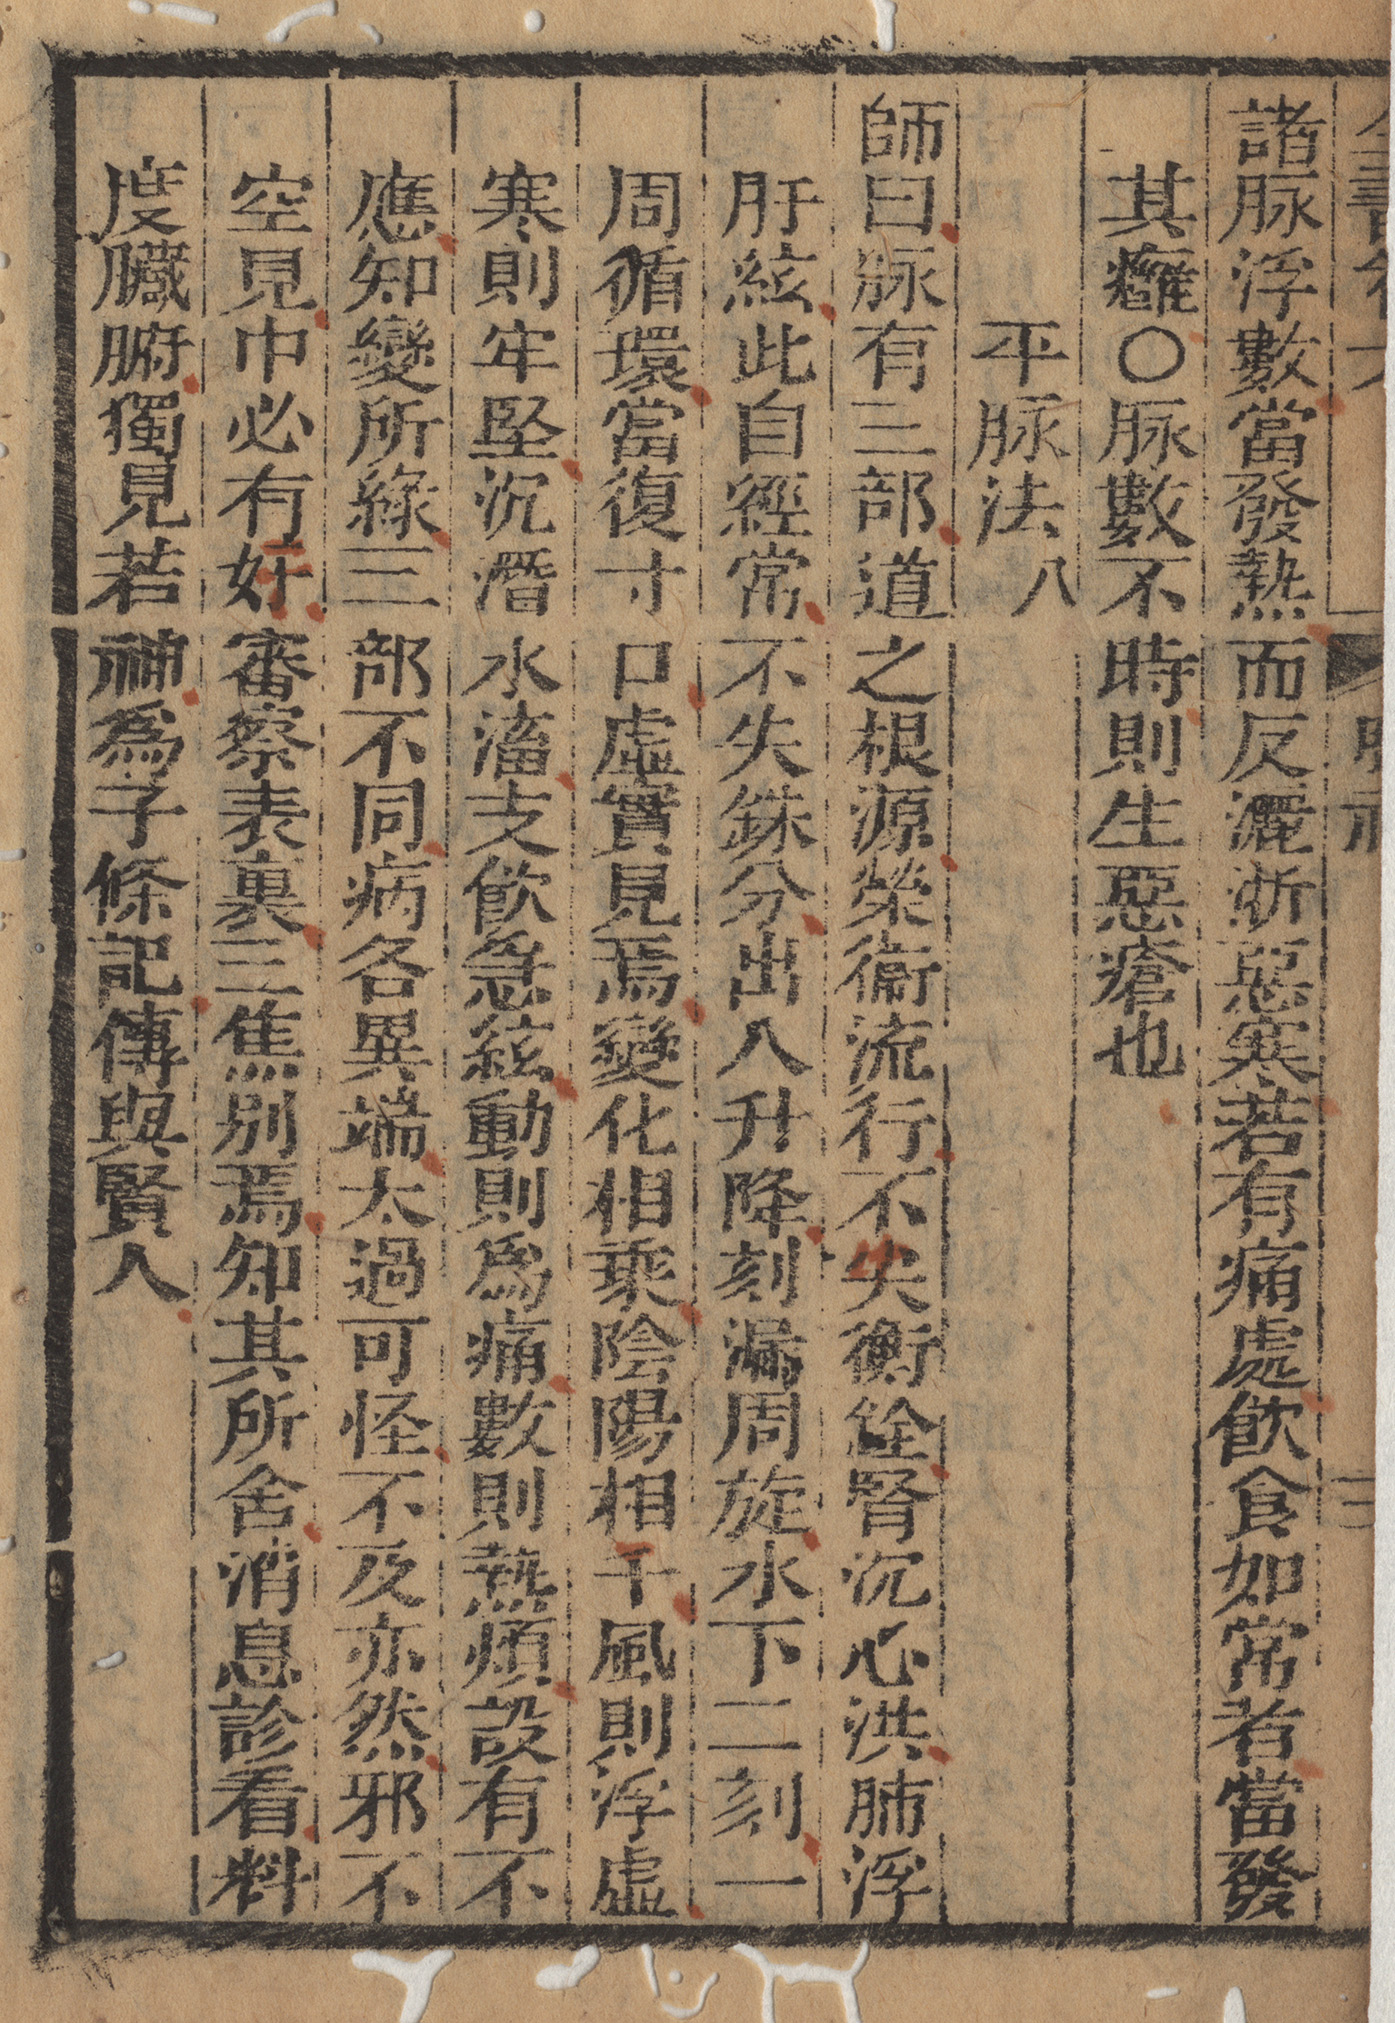 諸脉浮數當發熱而反灑淅惡寒若有痛處飲食如常者當發
其癰○脉數不時則生惡瘡也
平脉法八
師曰脉有三部道之根源榮衞流行不失衡銓腎沉心洪肺浮
肝絃此自經常不失銖分出入升降刻漏周旋水下二刻一
周循環當復寸口虛實見焉變化相乘陰陽相干風則浮虛
寒則牢堅沉潛水滀支飲急絃動則爲痛數則熱煩設有不
應知變所緣三部不同病各異端太過可怪不及亦然邪不
空見巾必有奸審察表裏三焦別焉知其所舍消息診看料
度臟腑獨見若神爲子條記傳與賢人